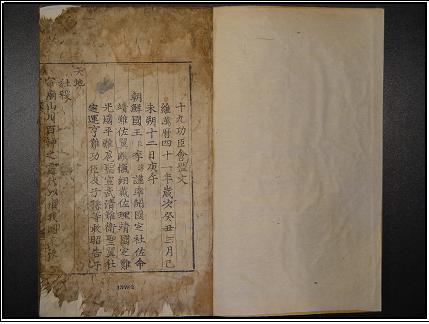 十九功臣會盟文
維萬曆四十一年歲次癸丑三月己
未朔十二日庚午
朝鮮國王臣李諱謹率開國定社佐命
靖難佐翼敵愾翊戴佐理靖國定難
光國平難扈聖宣武清難衛聖翼社
定運亨難功臣及子孫等敢昭告于
天地
社稷
宗廟山川百神之靈伏以惟我國